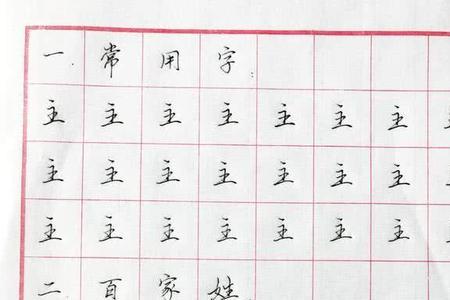 一.常用字
主主主主主主主
主主主主主主主
主主主主主主主
二百家姓